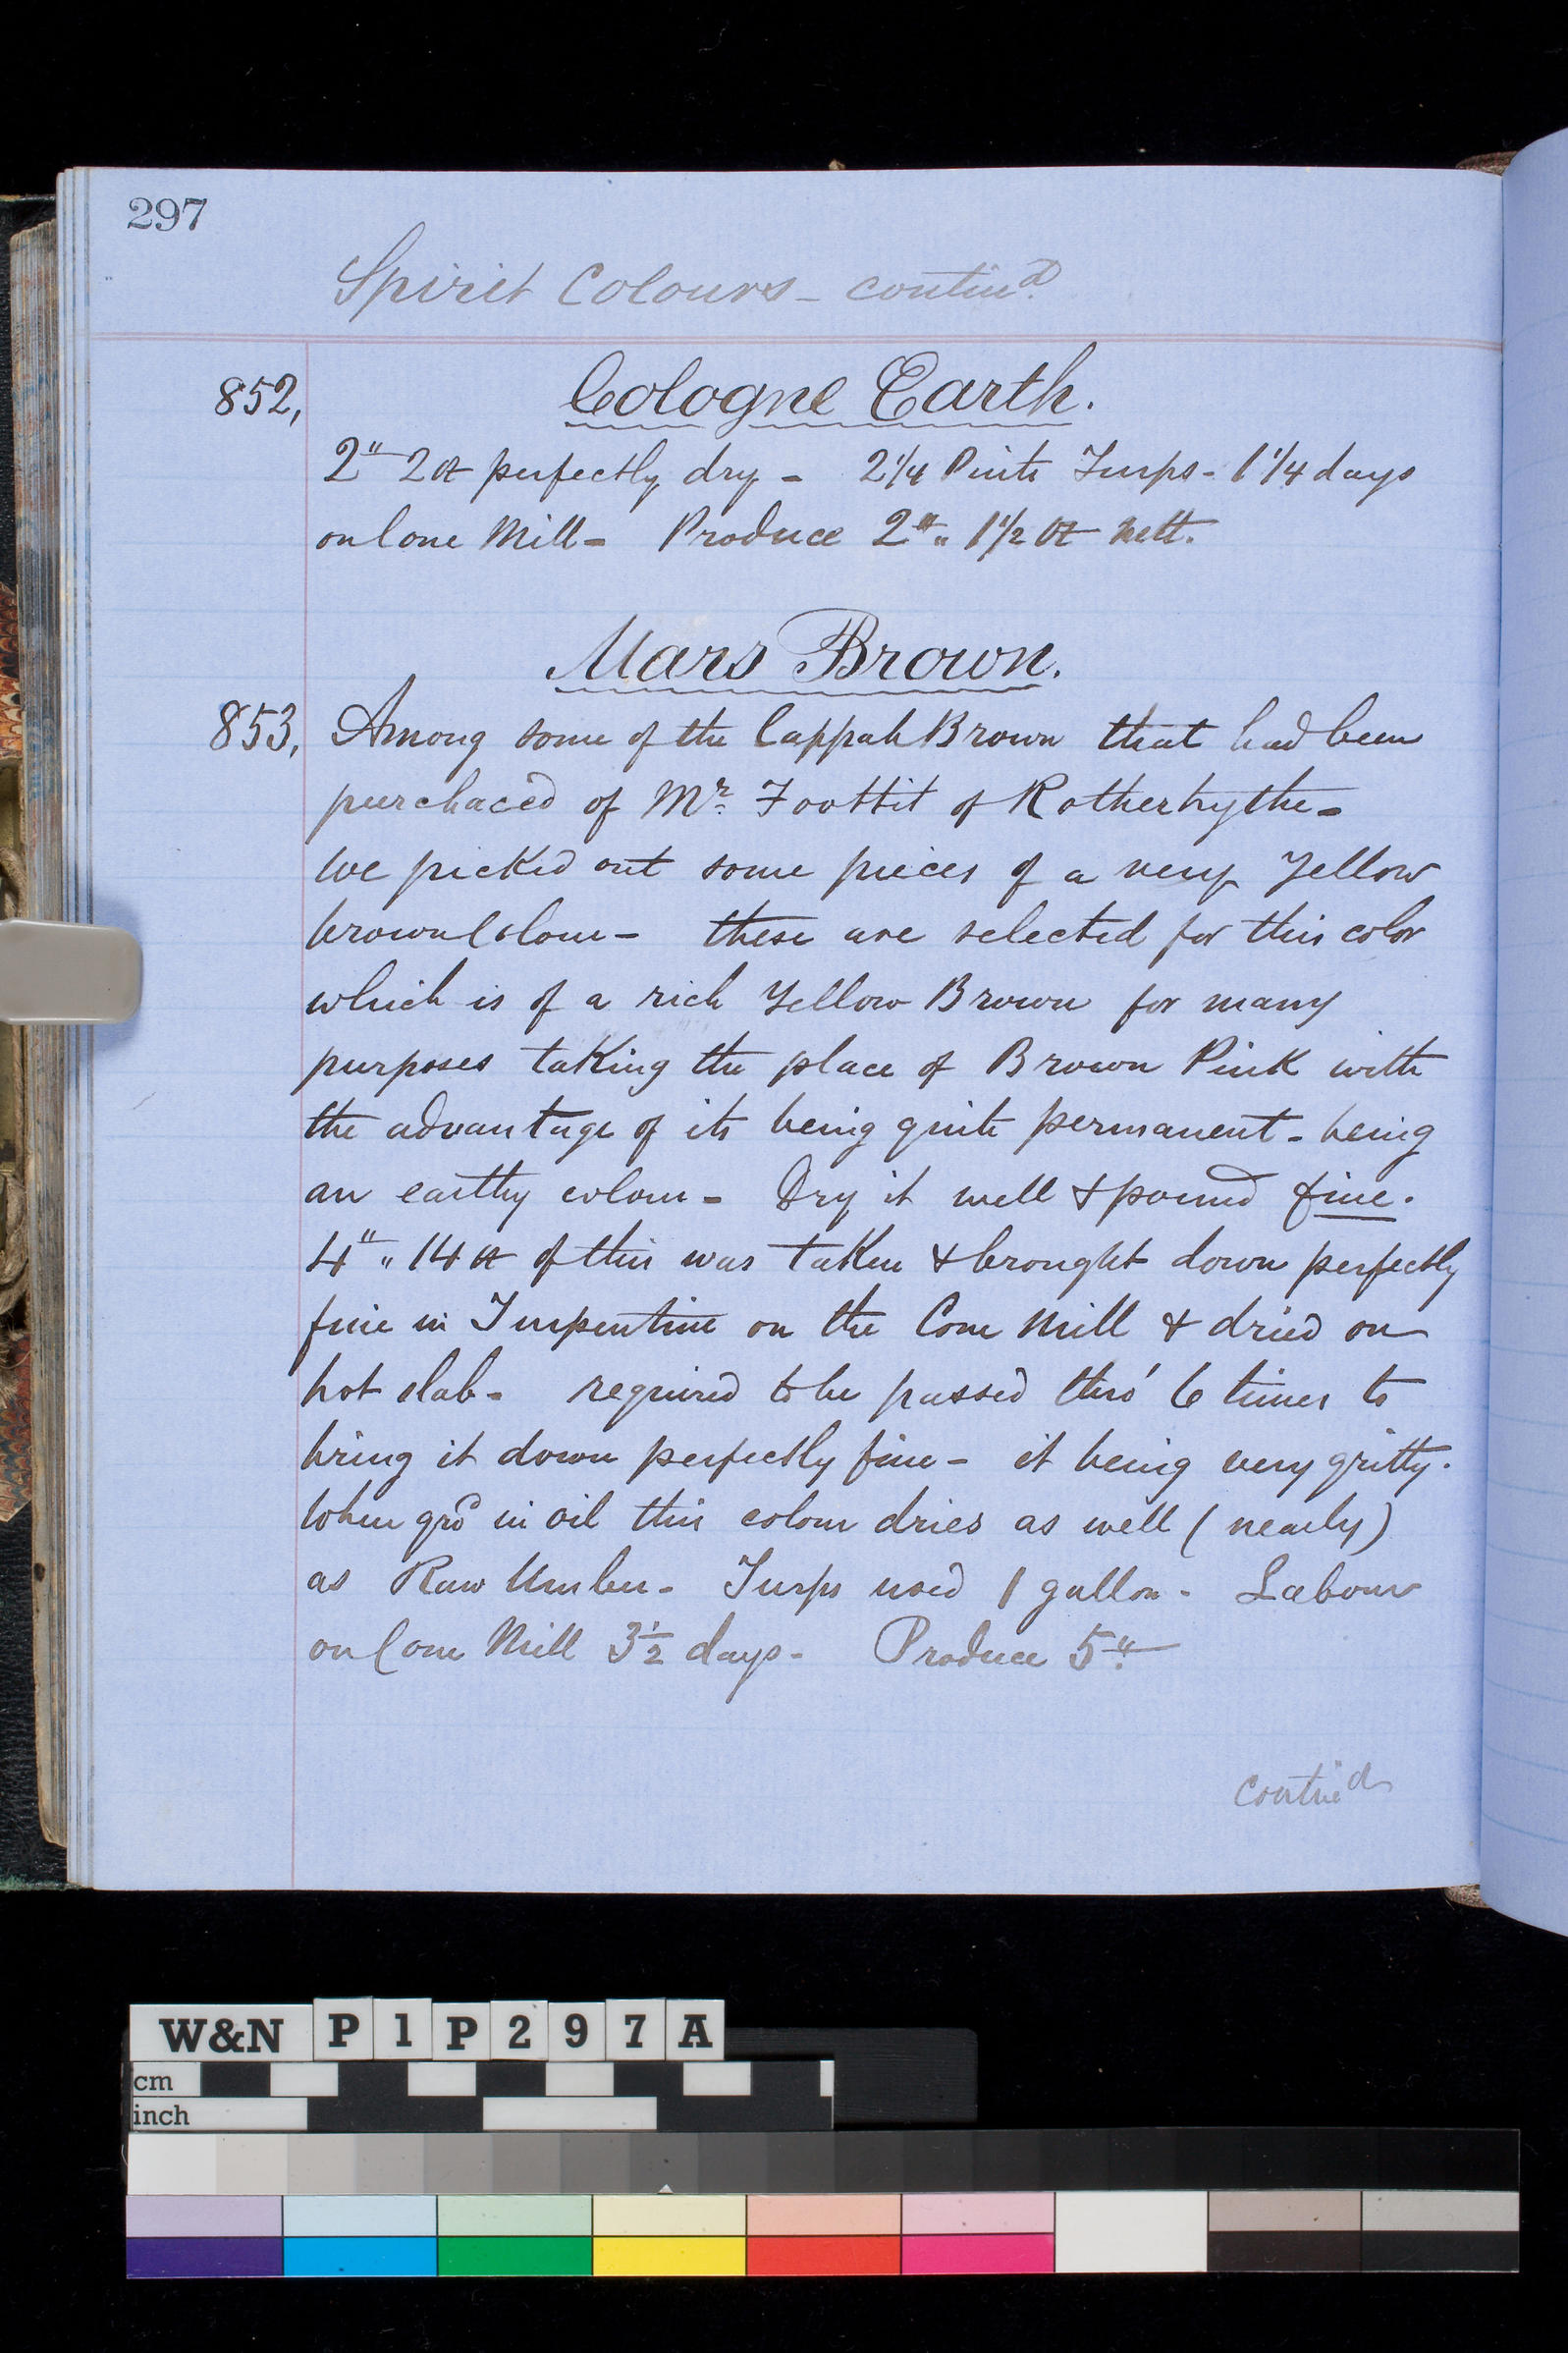 297
Spirit Colours - contind.
852,
Cologne Earth.
2lb 2 oz perfectly dry - 2 1/4 Pints Turps - 1 1/4 days
on Cone Mill - Produce 2lb „ 1 1/2 Oz nett.
Mars Brown.
853, Among some of the Cappah Brown that had been
purchaced of Mr. Foottit of Rotherhythe -
We picked out some pieces of a very Yellow
brown Colour - these are selected for this color
which is of a rich Yellow Brown for many
purposes taking the place of Brown Pink with
the advantage of its being quite permanent - being
an earthy colour - Dry it well & pound fine.
4lb „ 14 oz of this was taken & brought down perfectly
fine in Turpentine on the Cone Mill & dried on
hot slab - required to be passed thro' 6 times to
bring it down perfectly fine - it being very gritty.
When grd in oil this colour dries as well (nearly)
as Raw Umber - Turps used 1 gallon - Labour
on Cone Mill 3 1/2 days - Produce 5lb.
contind
W&N P1P297A
cm
inch